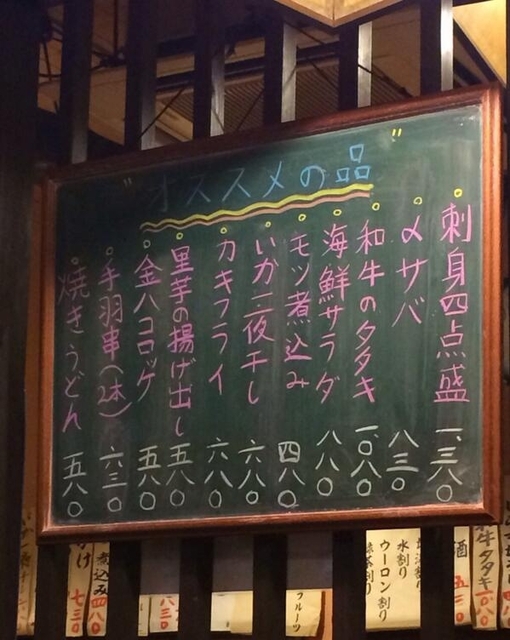 "オススメの品"
刺身四点盛 一、三八〇
〆サバ 八三〇
和牛のタタキ 一、〇八〇
海鮮サラダ 八八〇
モツ煮込み 四八〇
いか一夜干し 六八〇
カキフライ 六八〇
里芋の揚げ出し 五八〇
金ハコロッケ 五八〇
手羽串(2本) 六三〇
焼きうどん 五八〇
牛タタキ
酒
水割り
ウーロン割り
フルーツ
八三〇
煮込み 四八〇
け 七三〇